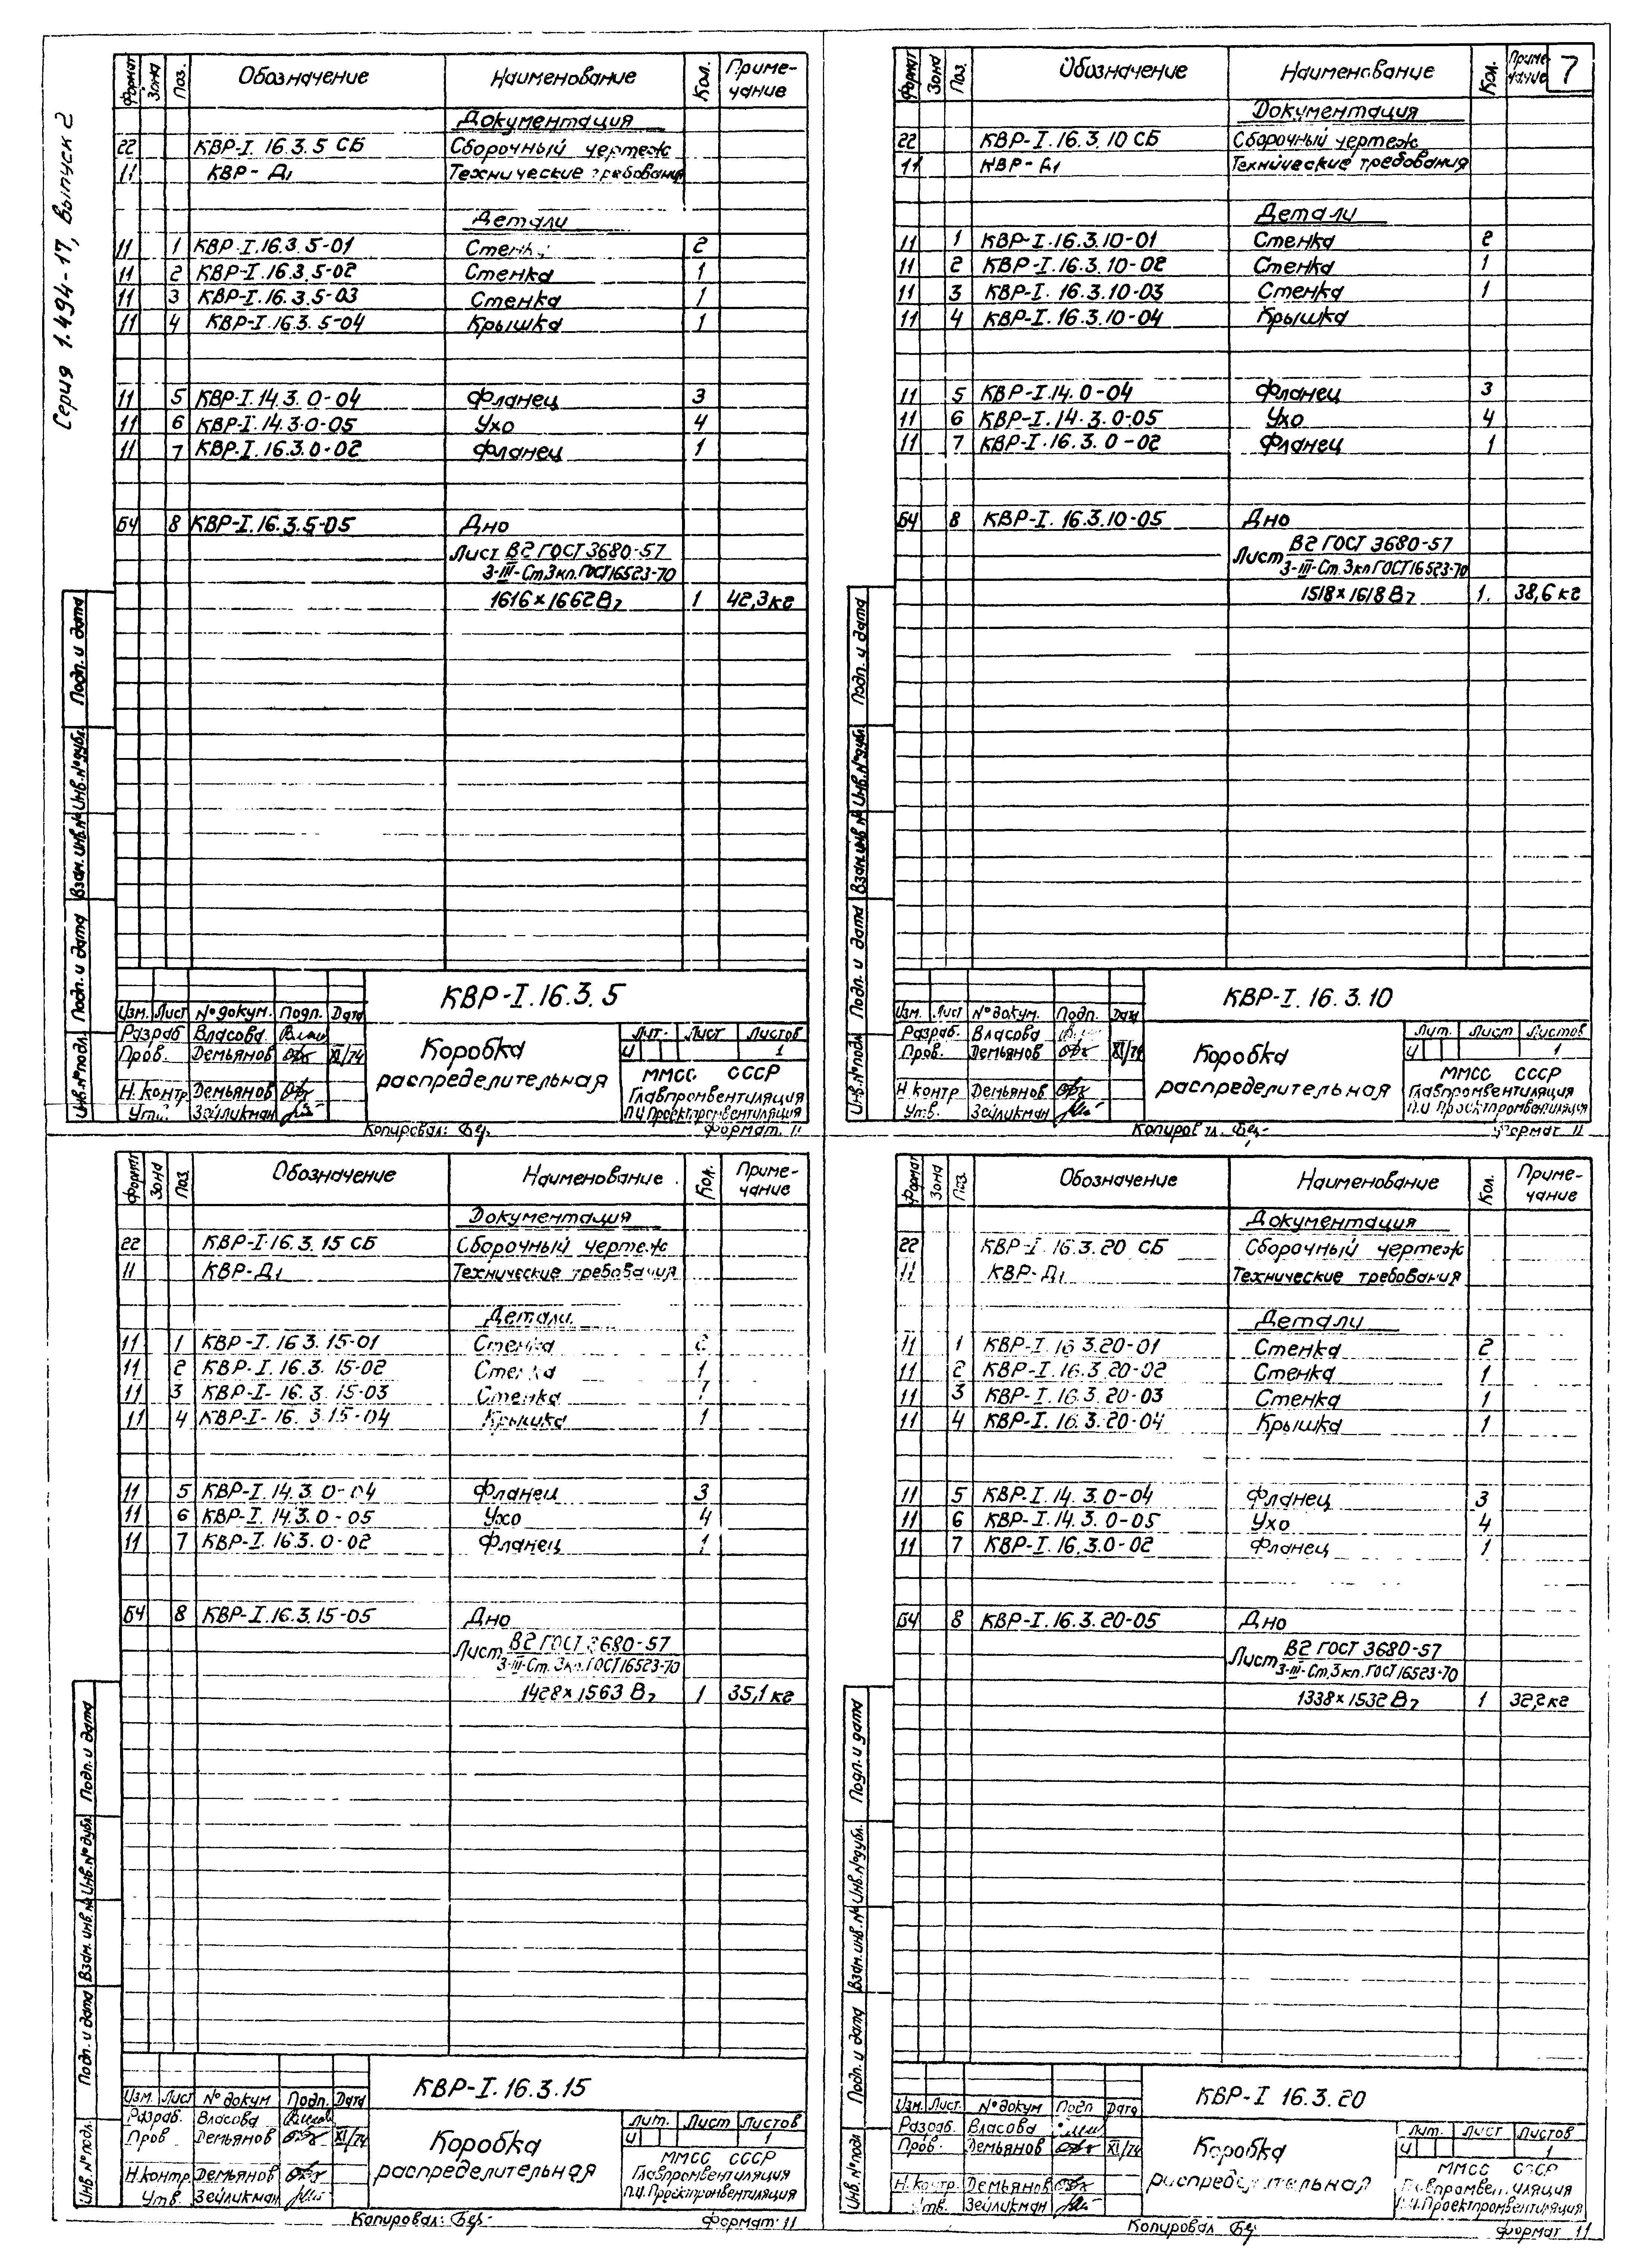 Серия 1.494-17, Выпуск 2
7
Формат Зона Поз. Обозначение Наименование Кол. Приме-
чание
Документация
22 КВР-I.16.3.5 СБ Сборочный чертеж
11 КВР-Д1 Технические требования
Детали
11 1 КВР-I.16.3.5-01 Стенка 2
11 2 КВР-I.16.3.5-02 Стенка 1
11 3 КВР-I.16.3.5-03 Стенка 1
11 4 КВР-I.16.3.5-04 Крышка 1
11 5 КВР-I.14.3.0-04 Фланец 3
11 6 КВР-I.14.3.0-05 Ухо 4
11 7 КВР-I.16.3.0-02 Фланец 1
БЧ 8 КВР-I.16.3.5-05 Дно
Лист В2 ГОСТ 3680-57
3-III-Ст.3кп.ГОСТ16523-70
1616×1662 В7 1 42,3кг
Инв.№подл. Подп. и дата Взам.инв.№ Инв.№дубл. Подп. и дата
КВР-I.16.3.5
Изм. Лист №докум. Подп. Дата
Разраб Власова
Пров. Демьянов XI/74
Н.контр Демьянов
Утв. Зейликман
Коробка
распределительная
Лит. Лист Листов
И 1
ММСС СССР
Главпромвентиляция
П.И. Проектпромвентиляция
Копировал: Формат 11
Формат Зона Поз. Обозначение Наименование Кол. Приме-
чание
Документация
22 КВР-I.16.3.10 СБ Сборочный чертеж
11 КВР-Д1 Технические требования
Детали
11 1 КВР-I.16.3.10-01 Стенка 2
11 2 КВР-I.16.3.10-02 Стенка 1
11 3 КВР-I.16.3.10-03 Стенка 1
11 4 КВР-I.16.3.10-04 Крышка
11 5 КВР-I.14.0-04 Фланец 3
11 6 КВР-I.14.3.0-05 Ухо 4
11 7 КВР-I.16.3.0-02 Фланец 1
БЧ 8 КВР-I.16.3.10-05 Дно
Лист В2 ГОСТ 3680-57
3-III-Ст.3кп ГОСТ16523-70
1518×1618 В7 1. 38,6 кг
Инв.№подл Подп. и дата Взам.инв № Инв.№дубл Подп. и дата
КВР-I.16.3.10
Изм. Лист №докум. Подп. Дата
Разраб. Власова
Пров. Демьянов XI/74
Н.контр Демьянов
Утв. Зейликман
Коробка
распределительная
Лит. Лист Листов
И 1
ММСС СССР
Главпромвентиляция
П.И Проектпромвентиляция
Копировал. Формат 11
Формат Зона Поз. Обозначение Наименование Кол. Приме-
чание
Документация
22 КВР-I-16.3.15 СБ Сборочный чертеж
11 КВР-Д1 Технические требования
Детали
11 1 КВР-I.16.3.15-01 Стенка 2
11 2 КВР-I.16.3.15-02 Стенка 1
11 3 КВР-I-16.3.15-03 Стенка 1
11 4 КВР-I-16.3.15-04 Крышка 1
11 5 КВР-I.14.3.0-04 Фланец 3
11 6 КВР-I.14.3.0-05 Ухо 4
11 7 КВР-I.16.3.0-02 Фланец 1
БЧ 8 КВР-I.16.3.15-05 Дно
Лист В2 ГОСТ 3680-57
3-III-Ст.3кп.ГОСТ16523-70
1428×1563 В7 1 35,1 кг
Инв.№подл. Подп. и дата Взам.инв.№ Инв.№дубл. Подп. и дата
КВР-I.16.3.15
Изм. Лист №докум Подп. Дата
Разраб. Власова
Пров Демьянов XI/74
Н.контр. Демьянов
Утв. Зейликман
Коробка
распределительная
Лит. Лист Листов
И 1
ММСС СССР
Главпромвентиляция
П.И. Проектпромвентиляция
Копировал: Формат 11
Формат Зона Поз. Обозначение Наименование Кол. Приме-
чание
Документация
22 КВР-I.16.3.20 СБ Сборочный чертеж
11 КВР-Д1 Технические требования
Детали
11 1 КВР-I.16.3.20-01 Стенка 2
11 2 КВР-I.16.3.20-02 Стенка 1
11 3 КВР-I.16.3.20-03 Стенка 1
11 4 КВР-I.16.3.20-04 Крышка 1
11 5 КВР.I.14.3.0-04 Фланец 3
11 6 КВР-I.14.3.0-05 Ухо 4
11 7 КВР-I.16.3.0-02 Фланец 1
БЧ 8 КВР-I.16.3.20-05 Дно
Лист В2 ГОСТ 3680-57
3-III-Ст.3кп.ГОСТ16523-70
1338×1532 В7 1 32,2кг
Инв.№подл Подп. и дата Взам.инв.№ Инв.№дубл. Подп. и дата
КВР-I 16.3.20
Изм. Лист. №докум Подп Дата
Разраб. Власова
Пров. Демьянов XI/74
Н.контр. Демьянов
Утв. Зейликман
Коробка
распределительная
Лит. Лист Листов
И 1
ММСС СССР
Главпромвентиляция
П.И.Проектпромвентиляция
Копировал Формат 11